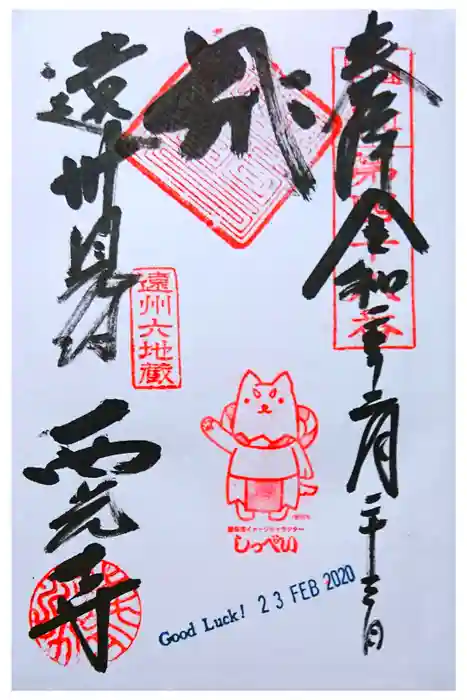 奉拝 令和二年二月二十三日
遠州見付
西光寺
遠州六地蔵
磐田市イメージキャラクター
しっぺい
Good Luck! 23 FEB 2020